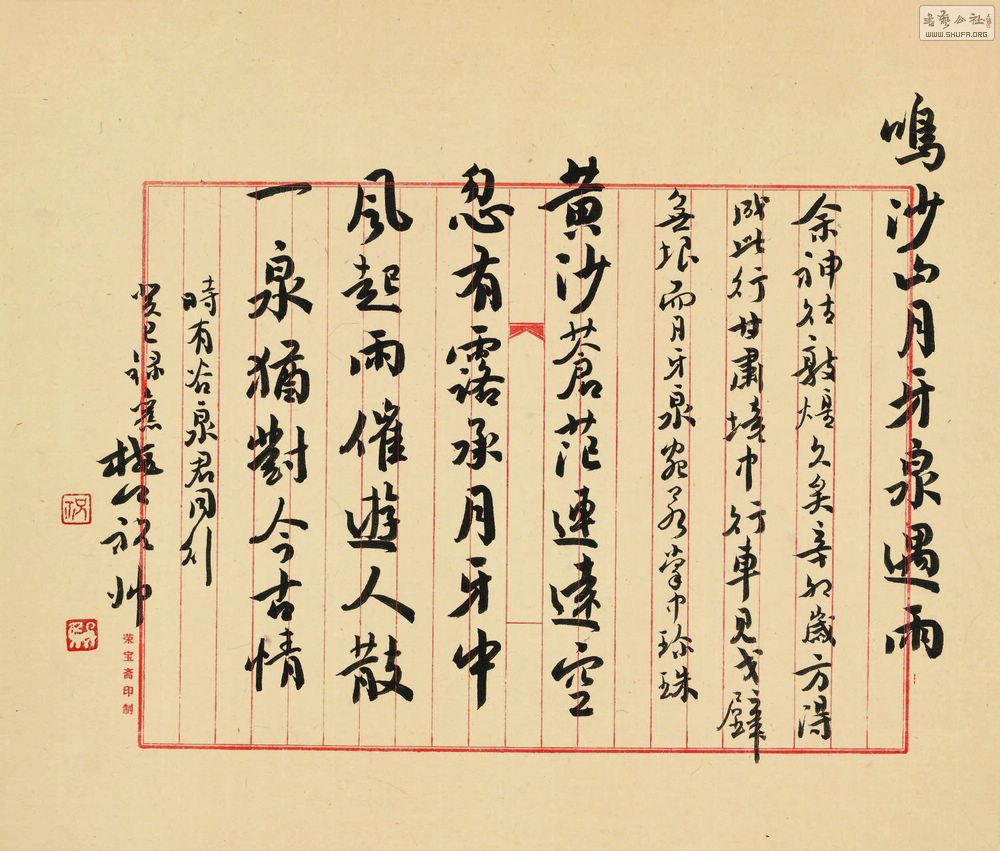 鳴沙山月牙泉遇雨
余神往敦煌久矣辛卯歲方得
成此行甘肅境中行車見戈壁
無垠而月牙泉宛若掌中珍珠
黄沙蒼茫連遠空
忽有露承月牙中
風起雨催遊人散
一泉猶對今古情
時有谷泉君同行
癸巳錄舊
樵公祝帅
祝
荣宝斋印制
書藝公社
WWW.SHUFA.ORG